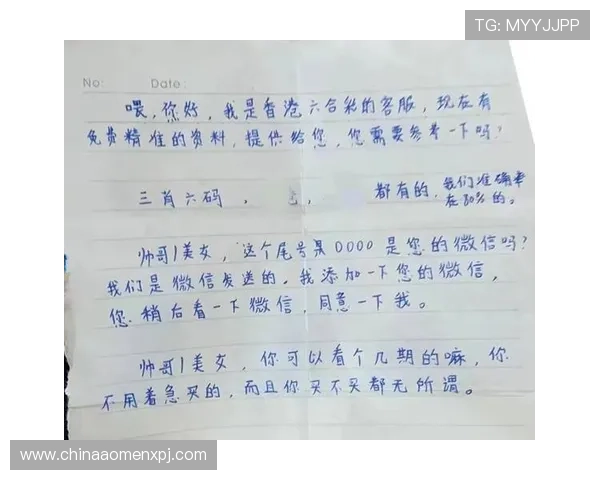 TG: MYYJJPP
No:
Date:
喂，你好，我是香港六合彩的客服，现在有
免费精准的资料，提供给您，您需要参考一下吗？
三肖六码，
，
都有的，我们准确率
在80%的。
帅哥/美女，这个尾号是0000是您的微信吗？
我们是微信发送的。我添加一下您的微信，
您稍后看一下微信，同意一下我。
帅哥/美女，你可以看个几期的嘛，你
不用着急买的，而且你买不买都无所谓。
www.chinaaomenxpj.com